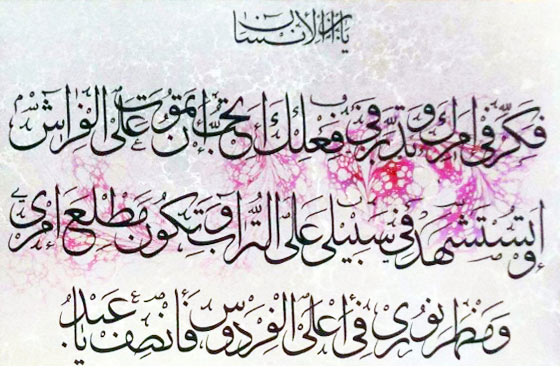 يا ابن الانسان
فَكِّر في امرك و تدبَّر في فِعلِك اتحبّ ان تموتَ عَلَى الفِراش
او تُستشهدَ في سَبيلي عَلَى التُّراب و تكونَ مَطلِعَ امري
و مَظهر نوري في اَعلَى الفردوس فَانصِف يا عبد